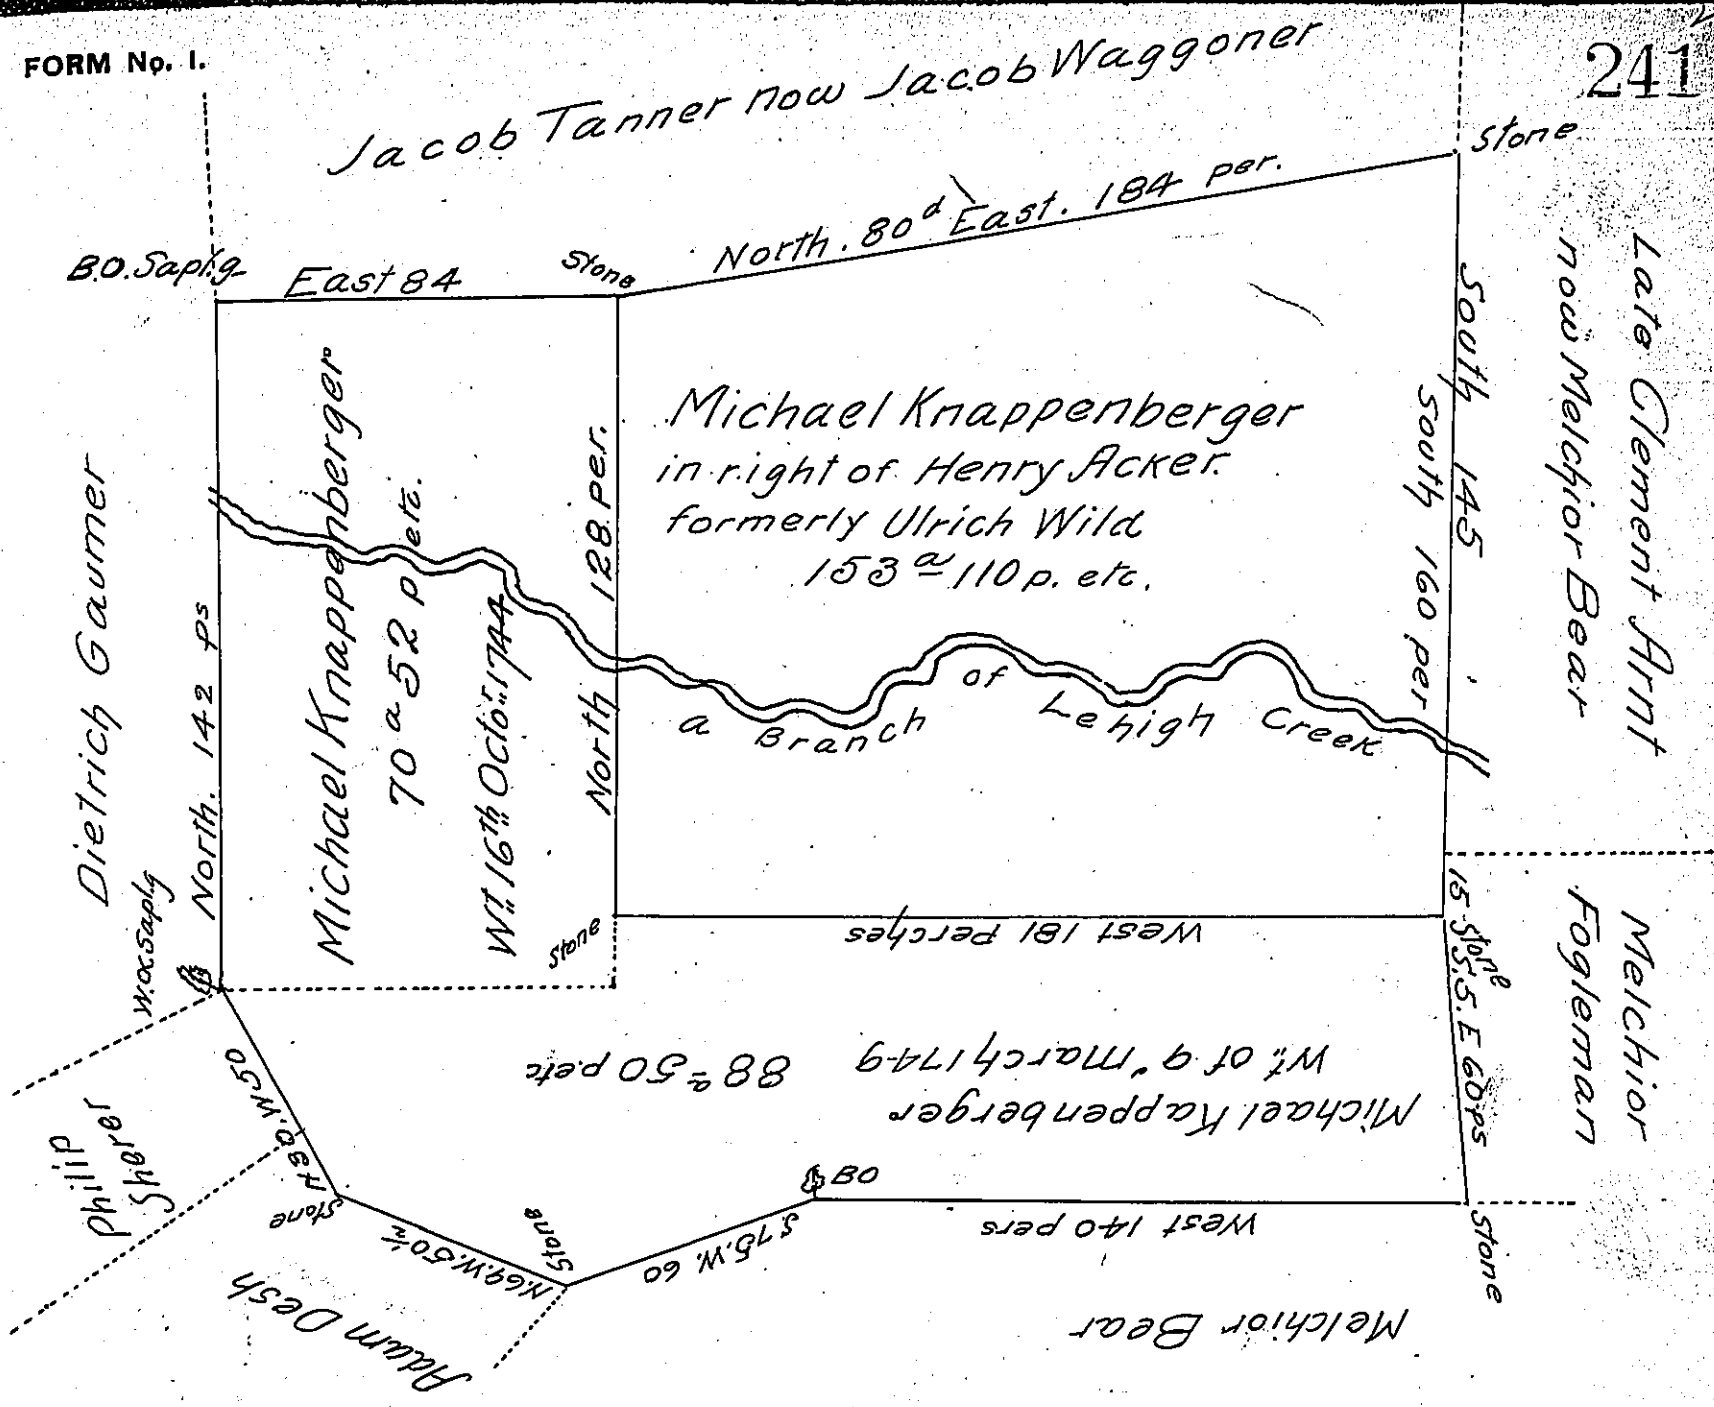 FORM No. 1.
241
Jacob Tanner now Jacob Waggoner
Stone
North. 80d East. 184 per.
B.O. Sapl.g
East 84
Stone
Late Clement Arnt
now Melchior Bear
South 145
South 160 per
Michael Knappenberger
in right of Henry Acker.
formerly Ulrich Wild
153 a 110 p. etc.
Dietrich Gaumer
North. 142 ps
W.O. Saplg
Michael Knappenberger
70 a 52 p etc.
Wt. 16th Octor. 1744
North 128 per.
Stone
a Branch of Lehigh Creek
West 181 Perches
Stone
15 S
S.5.E 60 ps
Melchior
Fogleman
Michael Kappenberger
Wt. of 9" march 1749
88 a 50 p. etc
N 30. W. 50
Phillip
Sherer
Stone
N. 69. W. 50 1/2
Stone
S 75. W. 60
BO
West 140 pers
Stone
Adam Desh
Melchior Bear